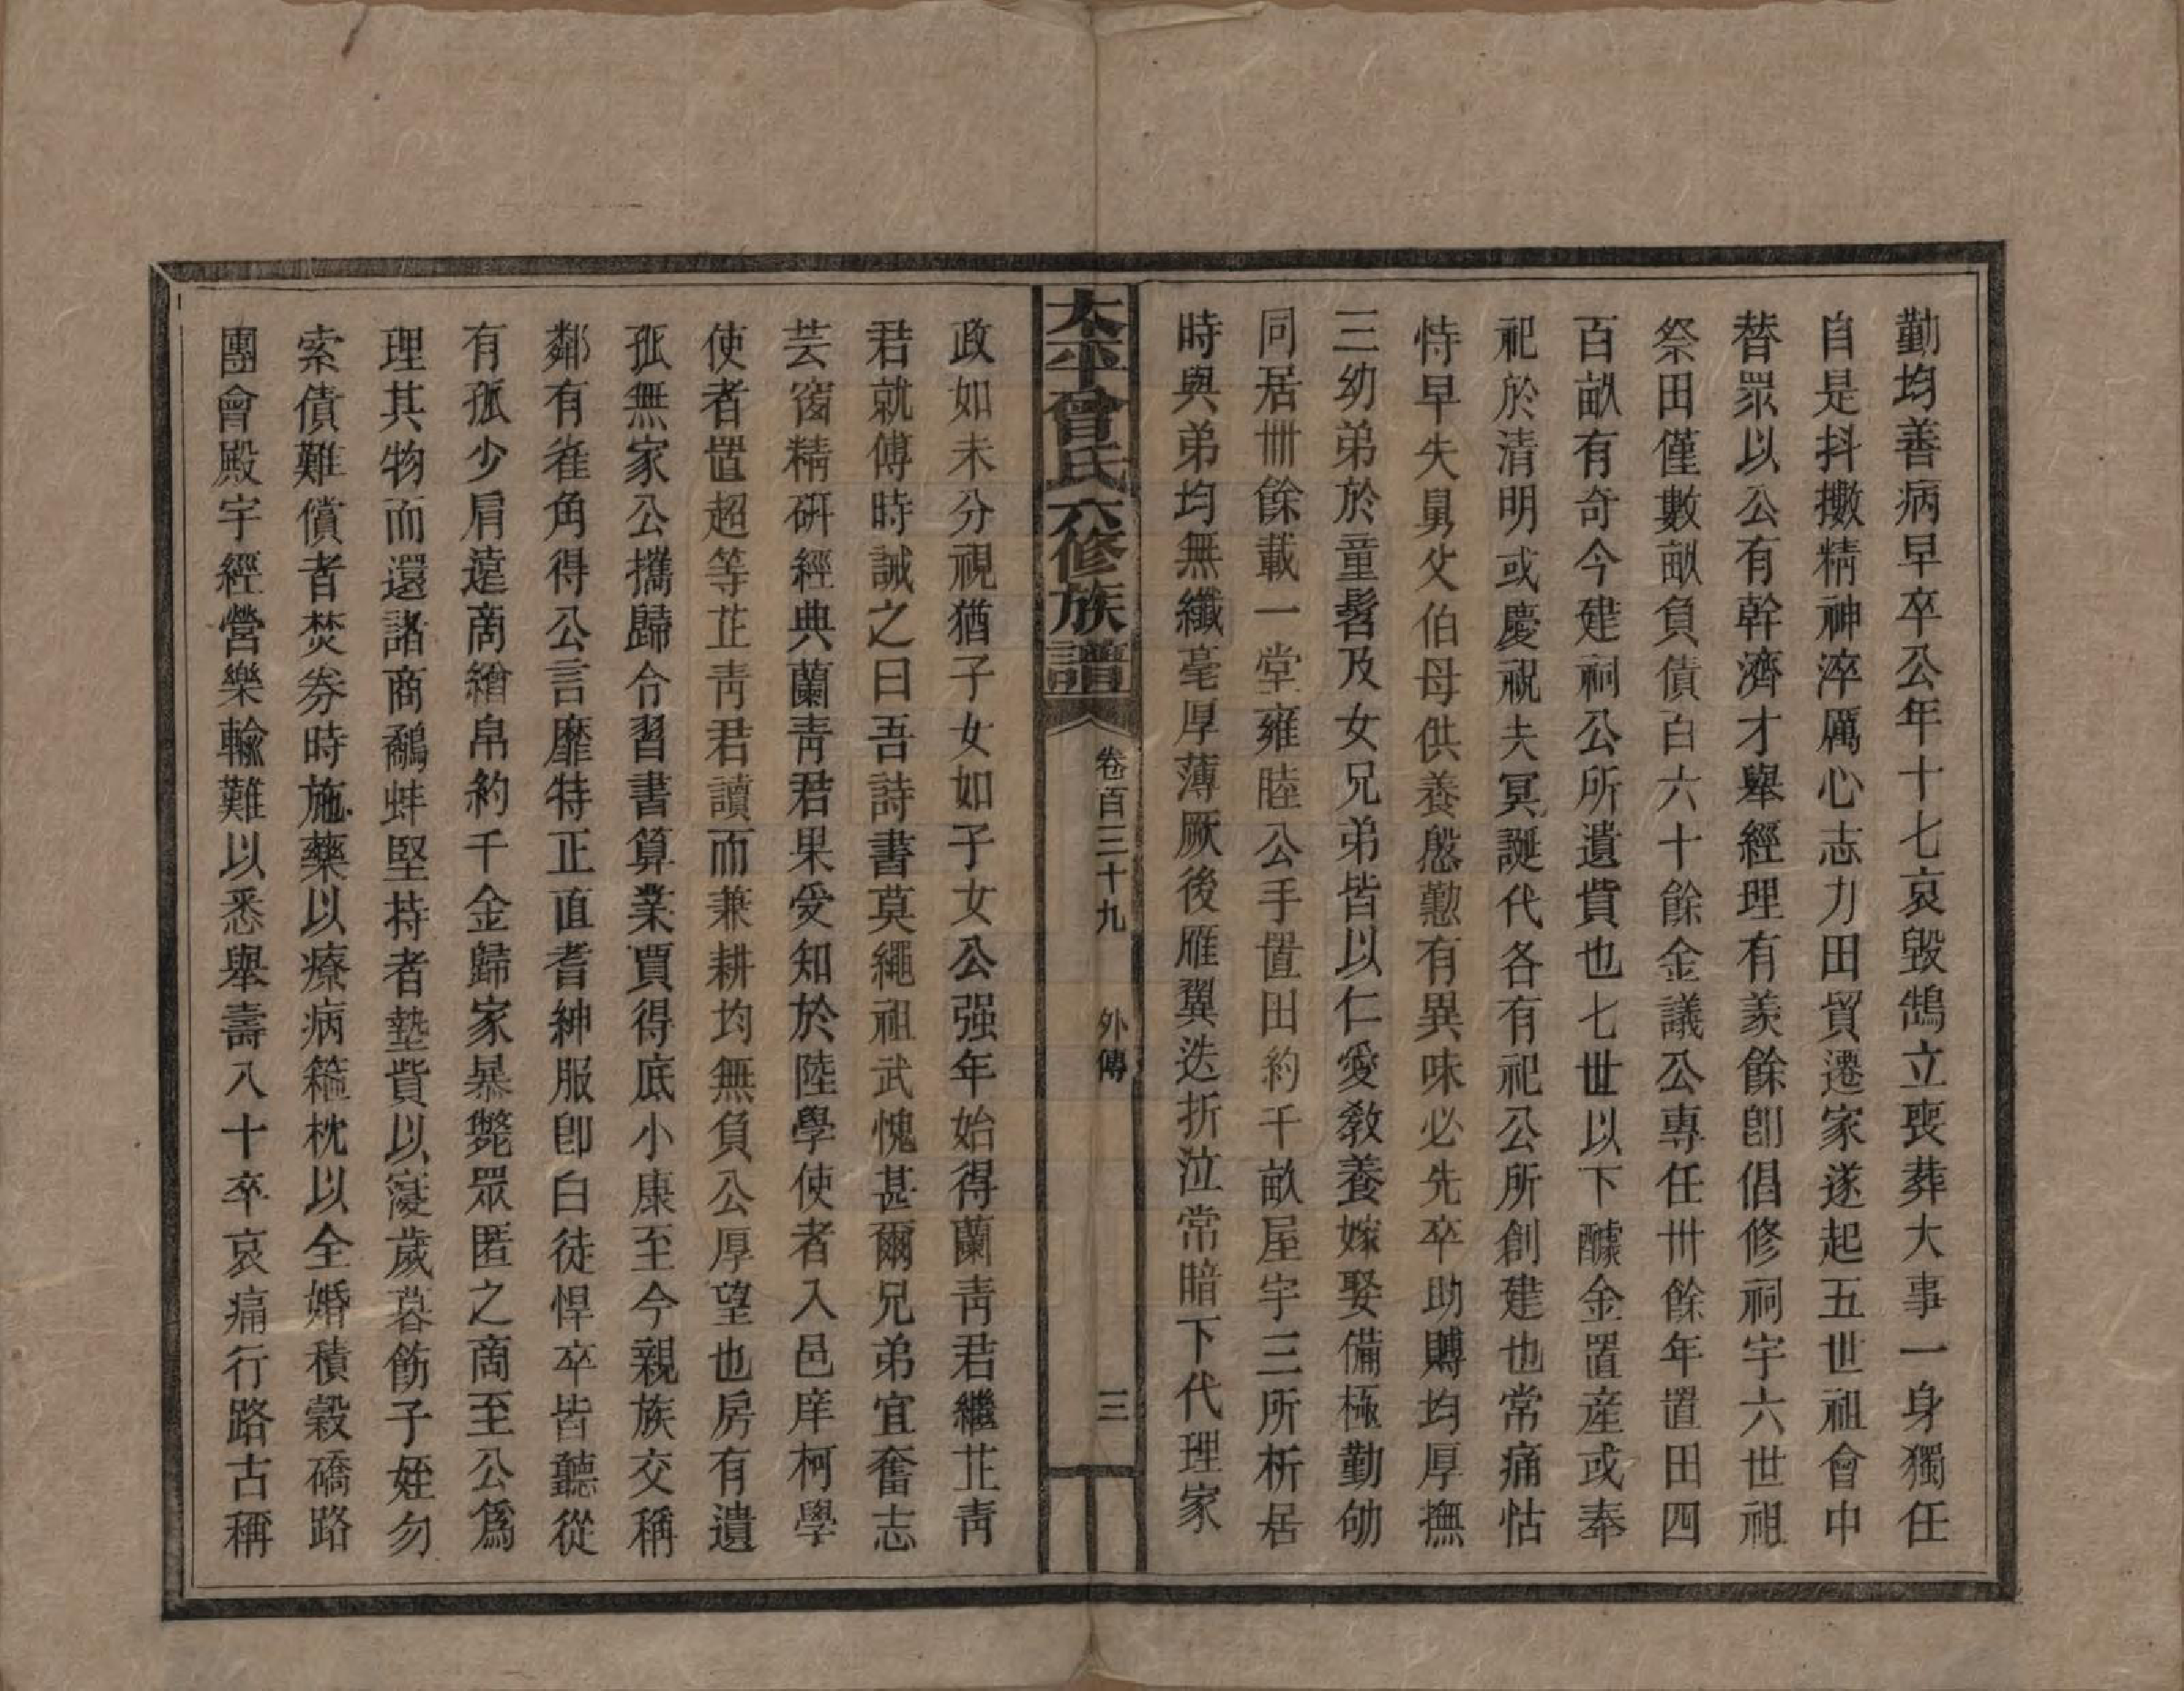 勤均善病早卒公年十七哀毀鵠立喪葬大事一身獨任
自是抖擻精神淬厲心志力田貿遷家遂起五世祖會中
替眾以公有幹濟才舉經理有羨餘卽倡修祠宇六世祖
祭田僅數畝負債白六十餘金議公專任卅餘年置田四
百畝有奇今建祠公所遺貲也七世以下醵金置產或奉
祀於清明或慶祝夫冥誕代各有祀公所創建也常痛怙
恃早失舅父伯母供養慇懃有異味必先卒助賻均厚撫
三幼弟於童髫及女兄弟皆以仁愛教養嫁娶備極勤劬
同居卌餘載一堂雍睦公手置田約千畝屋宇三所析居
時與弟均無纖毫厚薄厥後雁翼迭折泣常暗下代理家
太平曾氏六修族譜
卷百三十九　外傳　三
政如未分視猶子女如子女公强年始得蘭靑君繼芷靑
君就傅時誡之曰吾詩書莫繩祖武愧甚爾兄弟宜奮志
芸窗精研經典蘭靑君果受知於陸學使者入邑庠柯學
使者置超等芷靑君讀而兼耕均無負公厚望也房有遺
孤無家公攜歸令習書算業賈得底小康至今親族交稱
鄰有雀角得公言靡特正直耆紳服卽白徒悍卒皆聽從
有孤少肩遠商繒帛約千金歸家暴斃眾匿之商至公爲
理其物而還諸商鷸蚌堅持者墊貲以寢歲暮飭子姪勿
索債難償者焚券時施藥以療病箍枕以全婚積穀礄路
團會殿宇經營樂輸難以悉舉壽八十卒哀痛行路古稱